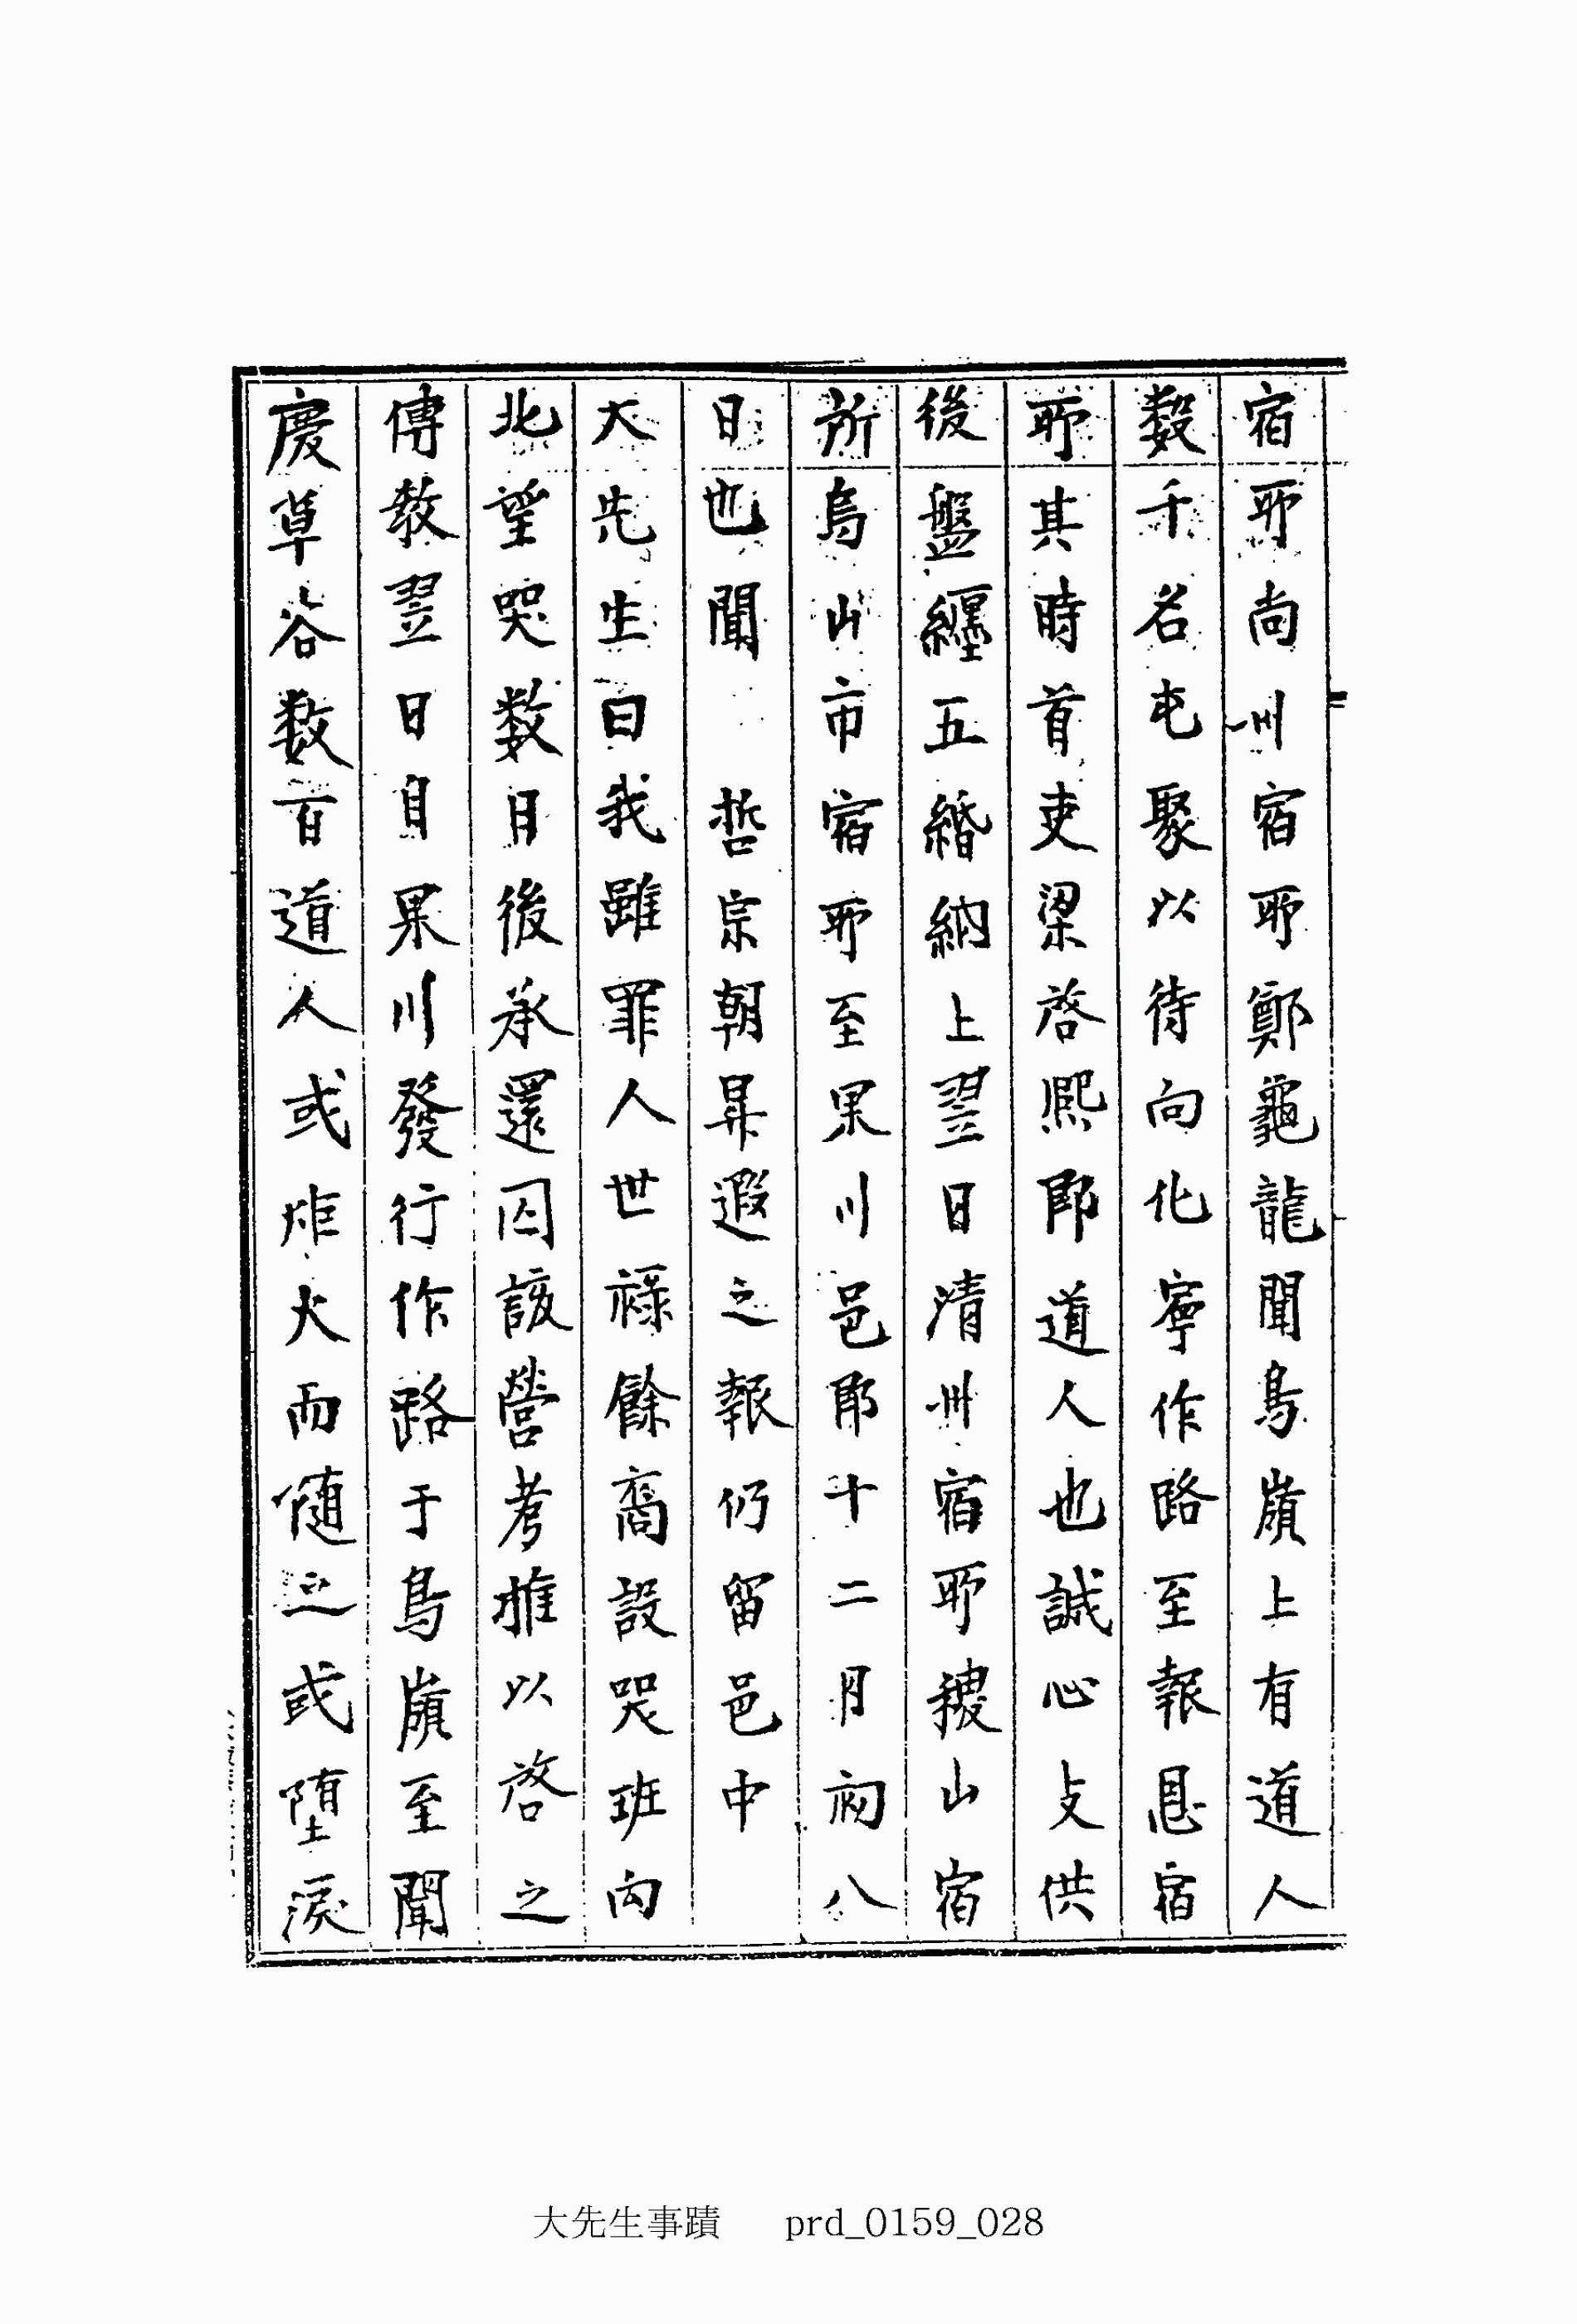 宿所尚州宿所鄭龜龍聞鳥嶺上有道人
数千名屯聚以待向化寧作路至報恩宿
所其時首吏梁啓熙即道人也誠心攴供
後盤纏五緡納上翌日清州宿所稷山宿
所烏山市宿所至果川邑即十二月初八
日也聞　哲宗朝昇遐之報仍留邑中
大先生曰我雖罪人世禄餘裔設哭班向
北望哭数日後承還囚該營考推以啓之
傳教翌日自果川發行作路于鳥嶺至聞
慶草谷数百道人或炬火而随之或堕淚
大先生事蹟　prd_0159_028